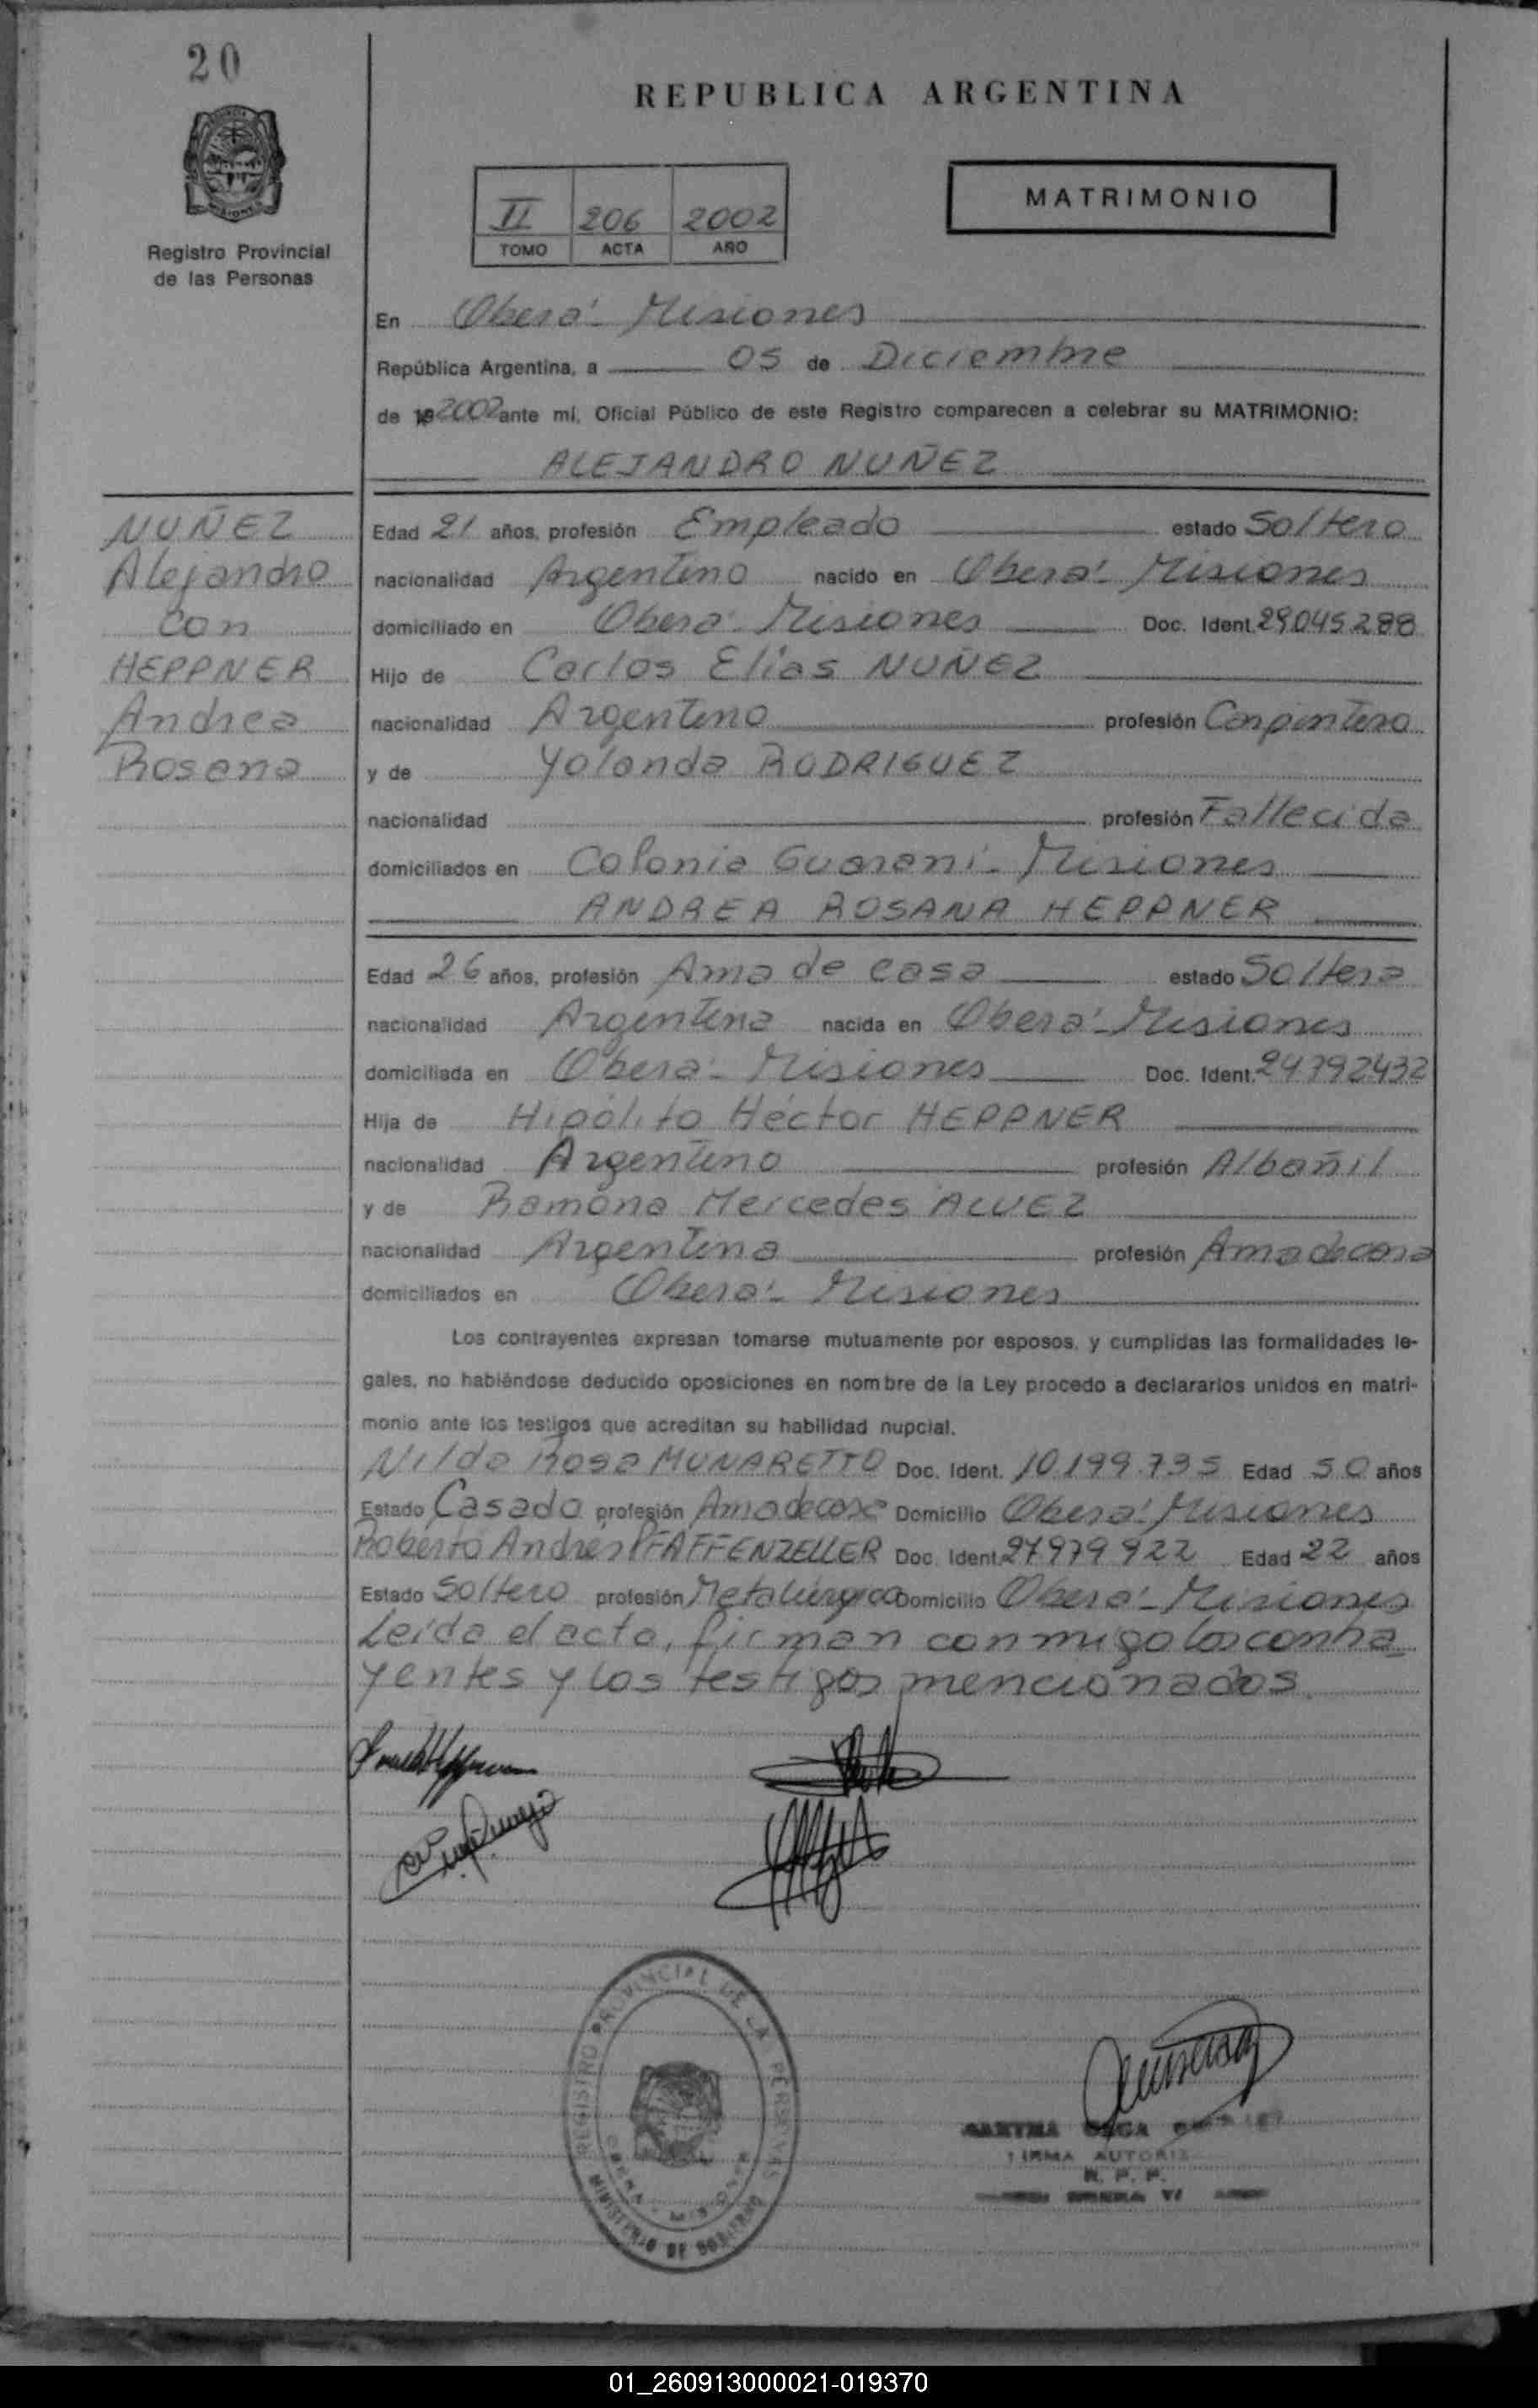 20
REPUBLICA ARGENTINA
MATRIMONIO
II 206 2002
TOMO ACTA AÑO
Registro Provincial
de las Personas
En Oberá - Misiones
República Argentina, a 05 de Diciembre
de 19 2002 ante mí, Oficial Público de este Registro comparecen a celebrar su MATRIMONIO:
ALEJANDRO NUÑEZ
NUÑEZ
Alejandro
con
HEPPNER
Andrea
Rosana
Edad 21 años, profesión Empleado estado Soltero
nacionalidad Argentino nacido en Oberá - Misiones
domiciliado en Oberá - Misiones Doc. Ident. 29.045.288
Hijo de Carlos Elías NUÑEZ
nacionalidad Argentino profesión Carpintero
y de Yolanda RODRIGUEZ
nacionalidad profesión Fallecida
domiciliados en Colonia Guaraní - Misiones
ANDREA ROSANA HEPPNER
Edad 26 años, profesión Ama de casa estado Soltera
nacionalidad Argentina nacida en Oberá - Misiones
domiciliada en Oberá - Misiones Doc. Ident. 24.792.432
Hija de Hipólito Héctor HEPPNER
nacionalidad Argentino profesión Albañil
y de Ramona Mercedes ALVEZ
nacionalidad Argentina profesión Ama de casa
domiciliados en Oberá - Misiones
Los contrayentes expresan tomarse mutuamente por esposos, y cumplidas las formalidades le-
gales, no habiéndose deducido oposiciones en nombre de la Ley procedo a declararlos unidos en matri-
monio ante los testigos que acreditan su habilidad nupcial.
Nilda Rosa MUNARETTO Doc. Ident. 10.199.735 Edad 50 años
Estado Casada profesión Ama de casa Domicilio Oberá - Misiones
Roberto Andrés PFAFFENZELLER Doc. Ident. 27979922 Edad 22 años
Estado Soltero profesión Metalúrgico Domicilio Oberá - Misiones
Leída el acta, firman conmigo los contra
yentes y los testigos mencionados.
REGISTRO PROVINCIAL DE LA PERSONAS
MINISTERIO DE GOBIERNO
OBERA - MISIONES
FIRMA AUTORIZ
R. P. P.
01_260913000021-019370